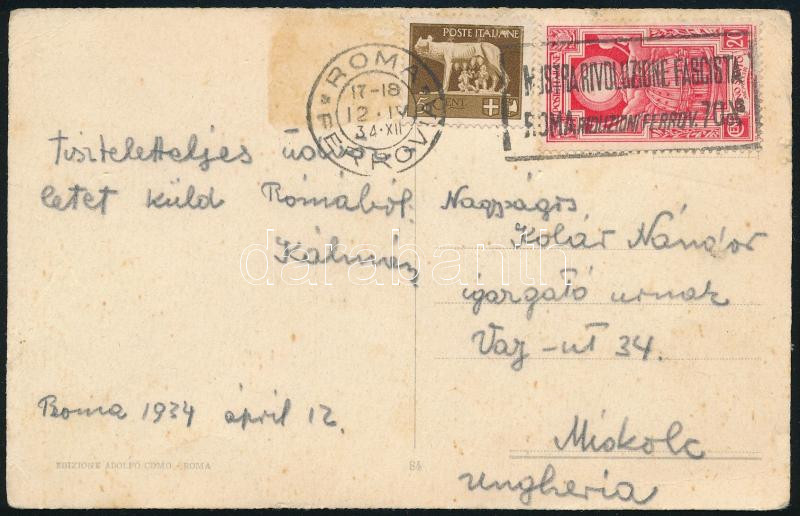 POSTE ITALIANE
5 CENT.
POSTE ITALIANE
20
ROMA
17-18
12·IV
34·XII
FERROVIA
MOSTRA RIVOLUZIONE FASCISTA
ROMA RIDUZIONI FERROV. 70%
Tiszteletteljes üdv
letet küld Rómából
Kálmán
Roma 1934 ápril 12.
Nagyságos
Kolár Nándor
igazgató urnak
Vay-ut 34.
Miskolc
Ungheria
EDIZIONE ADOLFO COMO - ROMA
84
darabanth